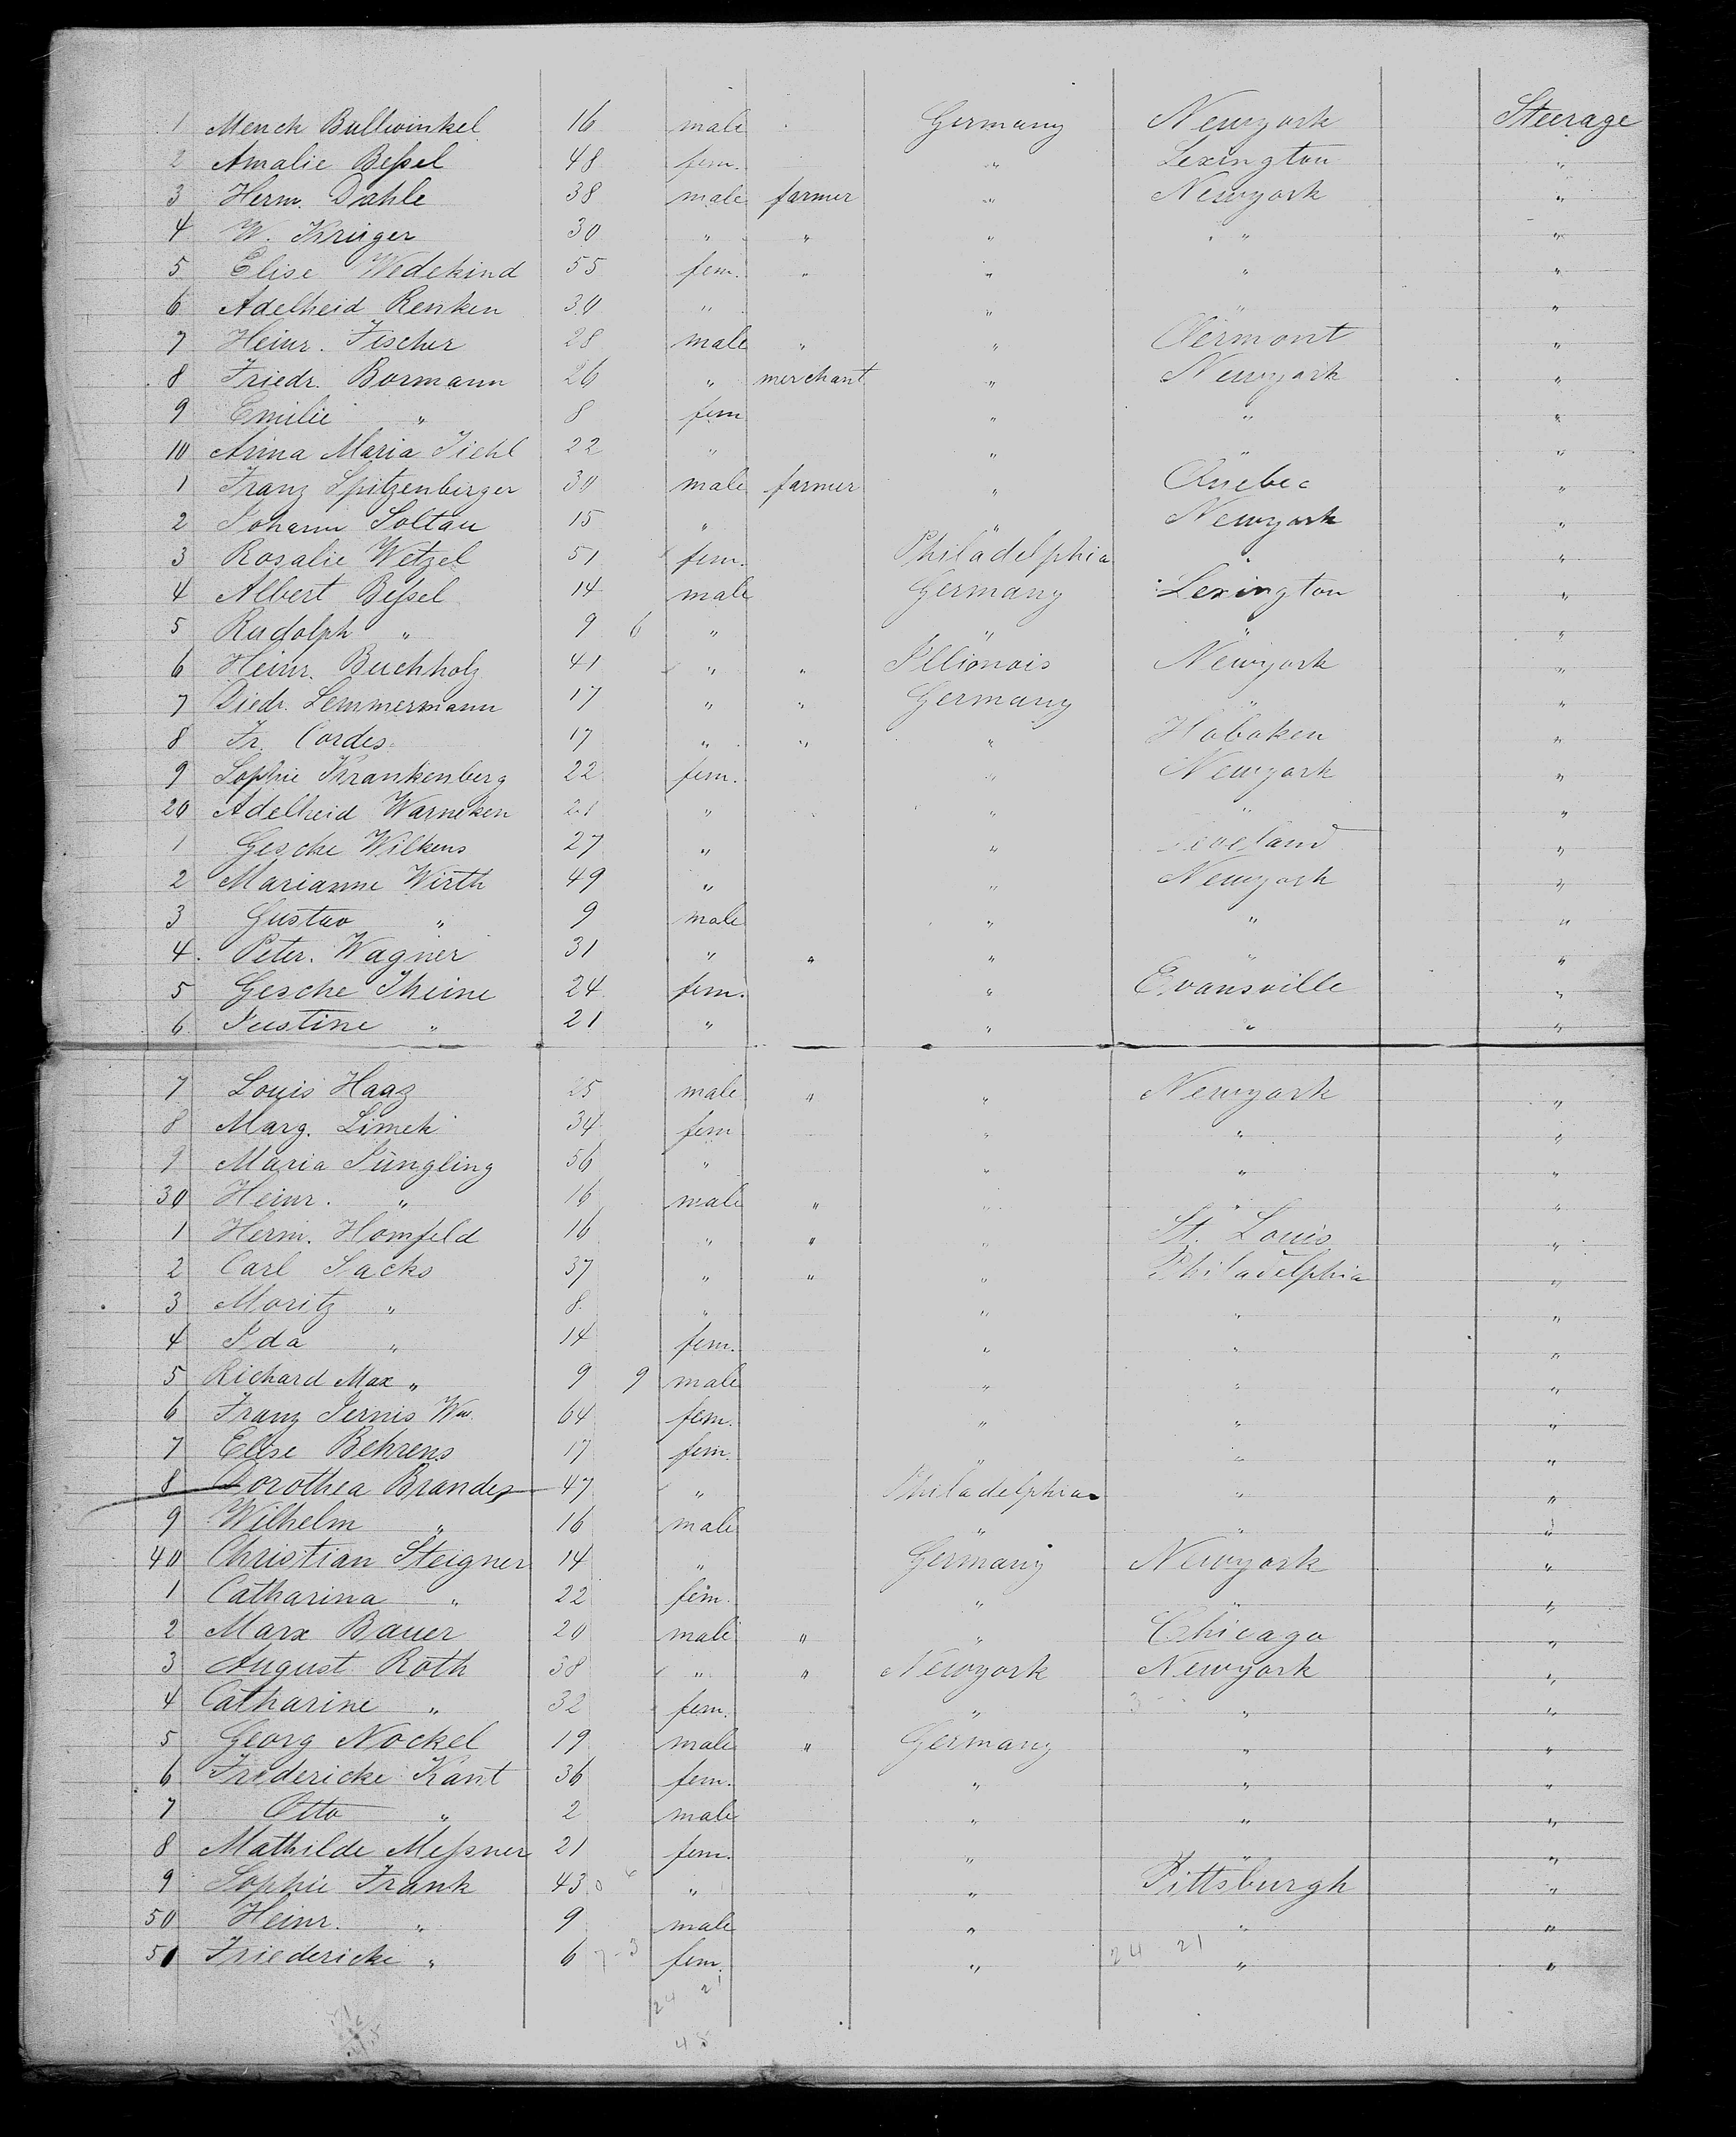 1 Menck Bullwinkel 16 male Germany Newyork Steerage
2 Amalie Beßel 48 fem. " Lexington "
3 Herm. Dahle 38 male farmer " Newyork "
4 W. Krüger 30 " " " " "
5 Elise Wedekind 55 fem. " " " "
6 Adelheid Renken 30 " " " "
7 Heinr. Fischer 28 male " " Vermont "
8 Friedr. Bormann 26 " merchant " Newyork "
9 Emilie " 8 fem " " "
10 Anna Maria 22 " " " "
1 Franz Spitzenberger 30 male farmer " Quebec "
2 Johann Soltau 15 " " Newyork "
3 Rosalie Wetzel 51 fem. Philadelphia " "
4 Albert Beßel 14 male Germany Lexington "
5 Rudolph " 9 6 " " " "
6 Heinr. Buchholz 41 " " Illionois Newyork "
7 Diedr. Lemmermann 17 " " Germany " "
8 Fr. Cordes 17 " " " Hoboken "
9 Sophie Krankenberg 22 fem. " Newyork "
20 Adelheid Warneken 21 " " " "
1 Gesche Wilkens 27 " " "
2 Marianne Wirth 49 " " Newyork "
3 Gustav " 9 male " " "
4. Peter. Wagner 31 " " " " "
5 Gesche Theine 24 fem. " Evansville "
6 Justine " 21 " " " "
7 Louis Haaz 25 male " " Newyork "
8 Marg. Limek 34 fem " " "
9 Maria Jüngling 56 " " " "
30 Heinr. " 16 male " " " "
1 Herm. Homfeld 16 " " " St. Louis "
2 Carl Sacks 37 " " " Philadelphia "
3 Moritz " 8 " " " "
4 Ida " 14 fem. " " "
5 Richard Max " 9 9 male " " "
6 Franz Jernis Ww. 64 fem. " " "
7 Elise Behrens 17 fem. " " "
8 Dorothea Brandes 47 " Philadelphia " "
9 Wilhelm " 16 male " " "
40 Christian Steigner 14 " Germany Newyork "
1 Catharina " 22 fem. " " "
2 Marx Bauer 20 male " " Chicago "
3 August Roth 38 " " Newyork Newyork "
4 Catharine " 32 fem. " " "
5 Georg Nockel 19 male " Germany " "
6 Fredericke Kant 36 fem. " " "
7 Otto " 2 male " " "
8 Mathilde Meßner 21 fem. " " "
9 Sophie Frank 43 " " Pittsburgh "
50 Heinr. " 9 male " " "
51 Friedericke " 6 7-3 fem. " 24 21 " "
24 21
48